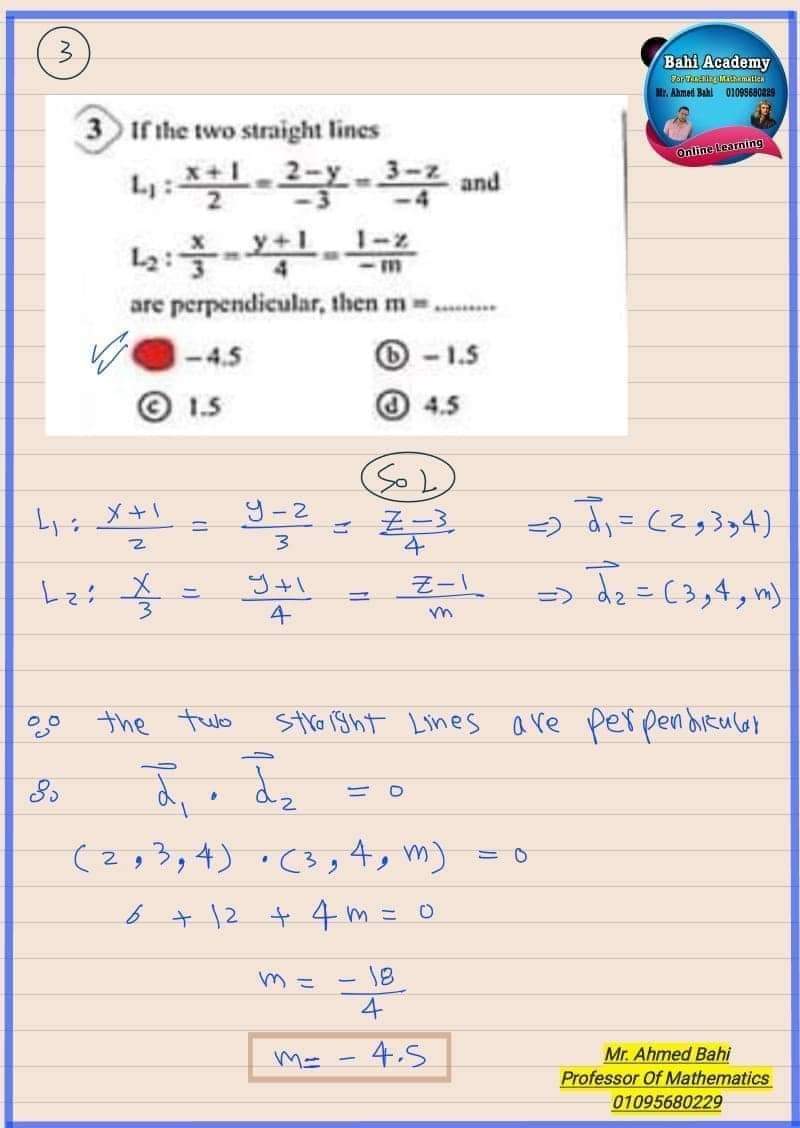 3
Bahi Academy
For Teaching Mathematics
Mr. Ahmed Bahi 01095680229
Online Learning
3 If the two straight lines
L₁ : (x+1)/2 = (2-y)/-3 = (3-z)/-4 and
L₂ : x/3 = (y+1)/4 = (1-z)/-m
are perpendicular, then m = .........
-4.5 ⓑ -1.5
ⓒ 1.5 ⓓ 4.5
SoL
L₁ : (x+1)/2 = (y-2)/3 = (z-3)/4 => d₁ = (2,3,4)
L₂ : x/3 = (y+1)/4 = (z-1)/m => d₂ = (3,4,m)
∵ the two straight Lines are perpendicular
∴ d₁ . d₂ = 0
(2,3,4) . (3,4,m) = 0
6 + 12 + 4m = 0
m = -18/4
m = -4.5
Mr. Ahmed Bahi
Professor Of Mathematics
01095680229